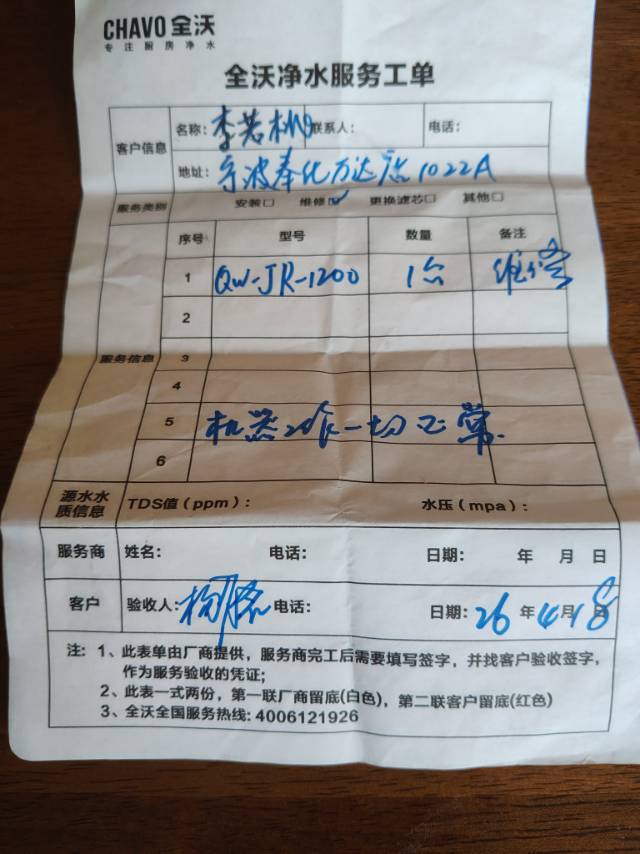 CHAVO 全沃
专注厨房净水
全沃净水服务工单
客户信息 名称：李若桃 联系人： 电话：
地址：宁波奉化万达店1022A
服务类别 安装□ 维修☑ 更换滤芯□ 其他□
序号 型号 数量 备注
1 QW-JR-1200 1台 维修
2
服务信息 3
4
5 机器工作一切正常.
6
源水水质信息 TDS值（ppm）： 水压（mpa）：
服务商 姓名： 电话： 日期： 年 月 日
客户 验收人： 电话： 日期：26年4月18日
注：1、此表单由厂商提供，服务商完工后需要填写签字，并找客户验收签字，
作为服务验收的凭证；
2、此表一式两份，第一联厂商留底(白色)，第二联客户留底(红色)
3、全沃全国服务热线: 4006121926